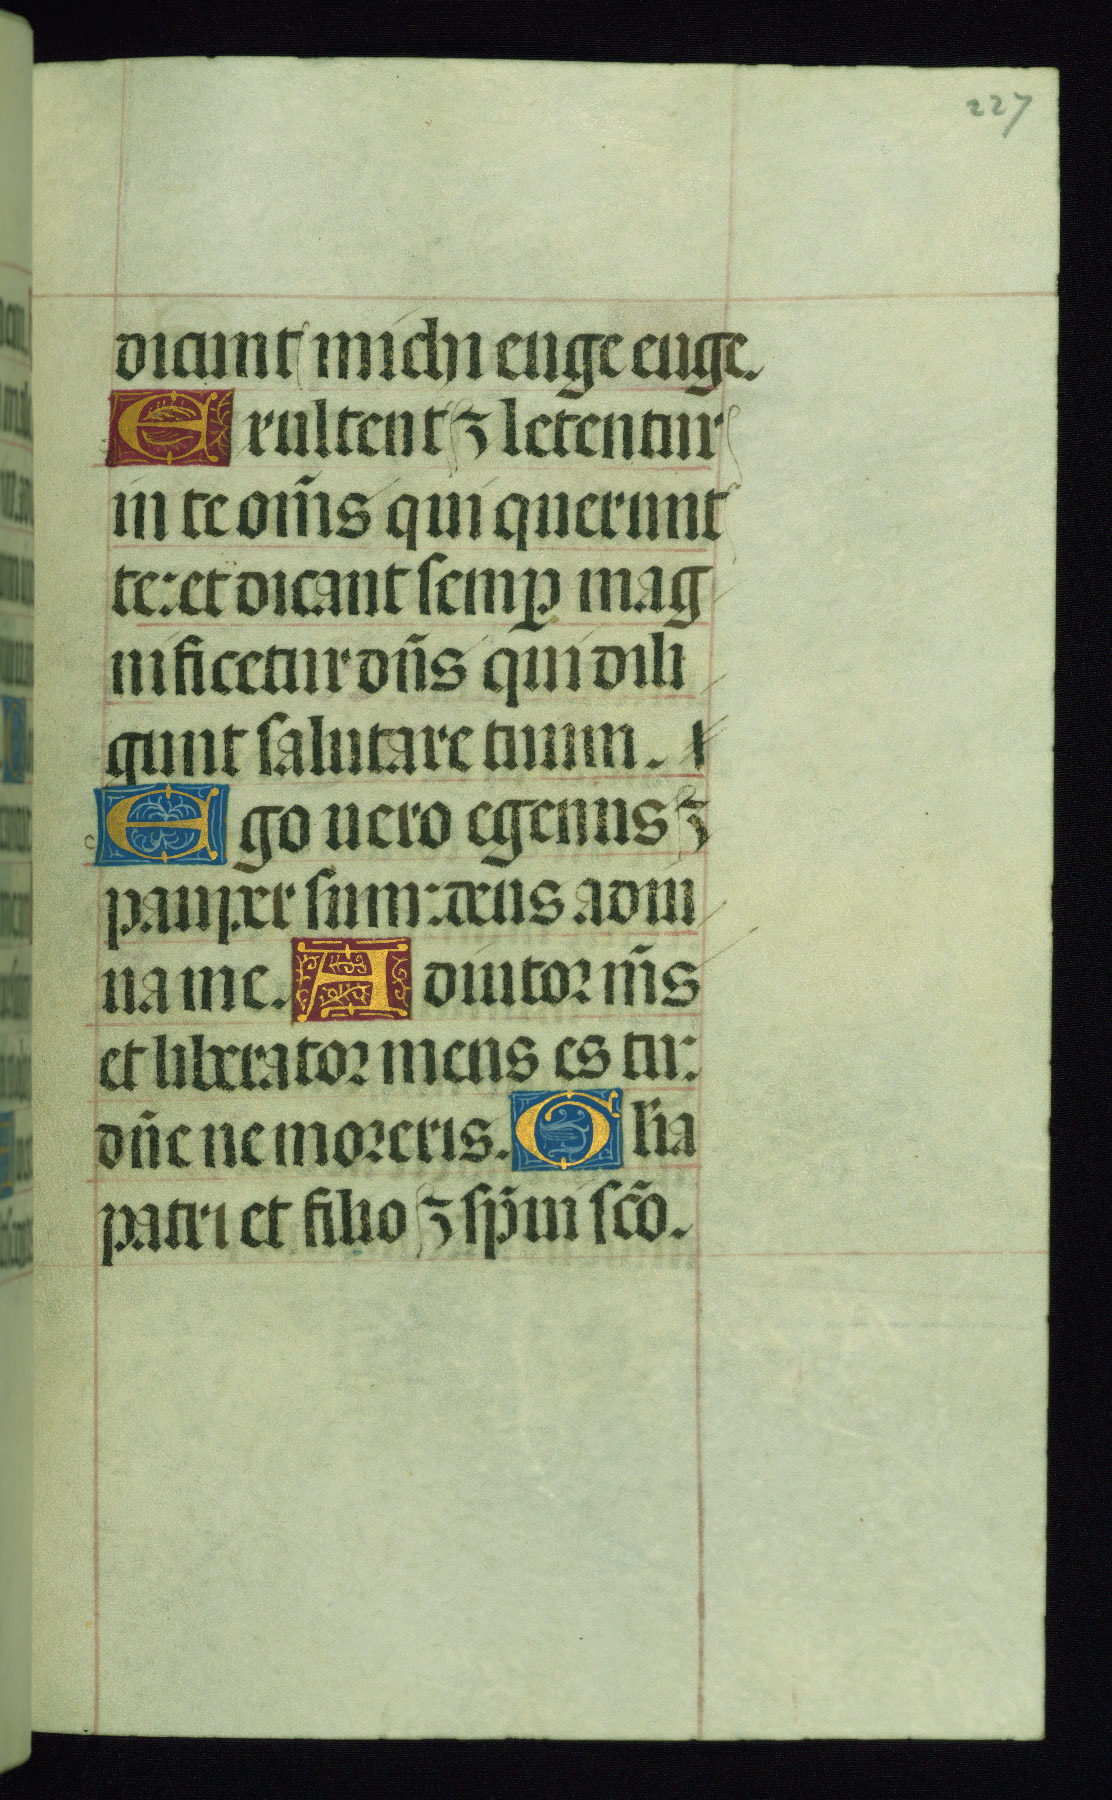 227
dicunt michi euge euge.
Exultent ⁊ letentur
in te om̄s qui querunt
te: et dicant semꝑ mag
nificetur dn̄s qui dili
gunt salutare tuum.
Ego uero egenus ⁊
pauper sum: deus adiu
ua me. Adiutor m̄s
et liberator meus es tu:
dn̄e ne moreris. Glīa
patri et filio ⁊ sp̄ui sc̄o.